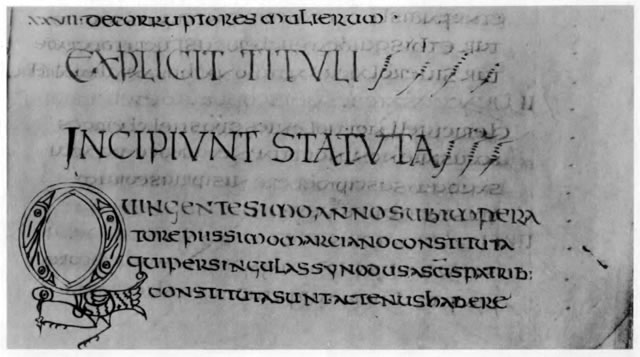 XXVII· DE CORRUPTORES MULIERUM ·
EXPLICIT TITVLI
INCIPIVNT STATVTA
QUINGENTESIMO ANNO SUB IMPERA
TORE PIISSIMO MARCIANO CONSTITUTA
QUI PER SINGULAS SYNODUS A SCIS PATRIB:
CONSTITUTA SUNT ACTENUS HABERE